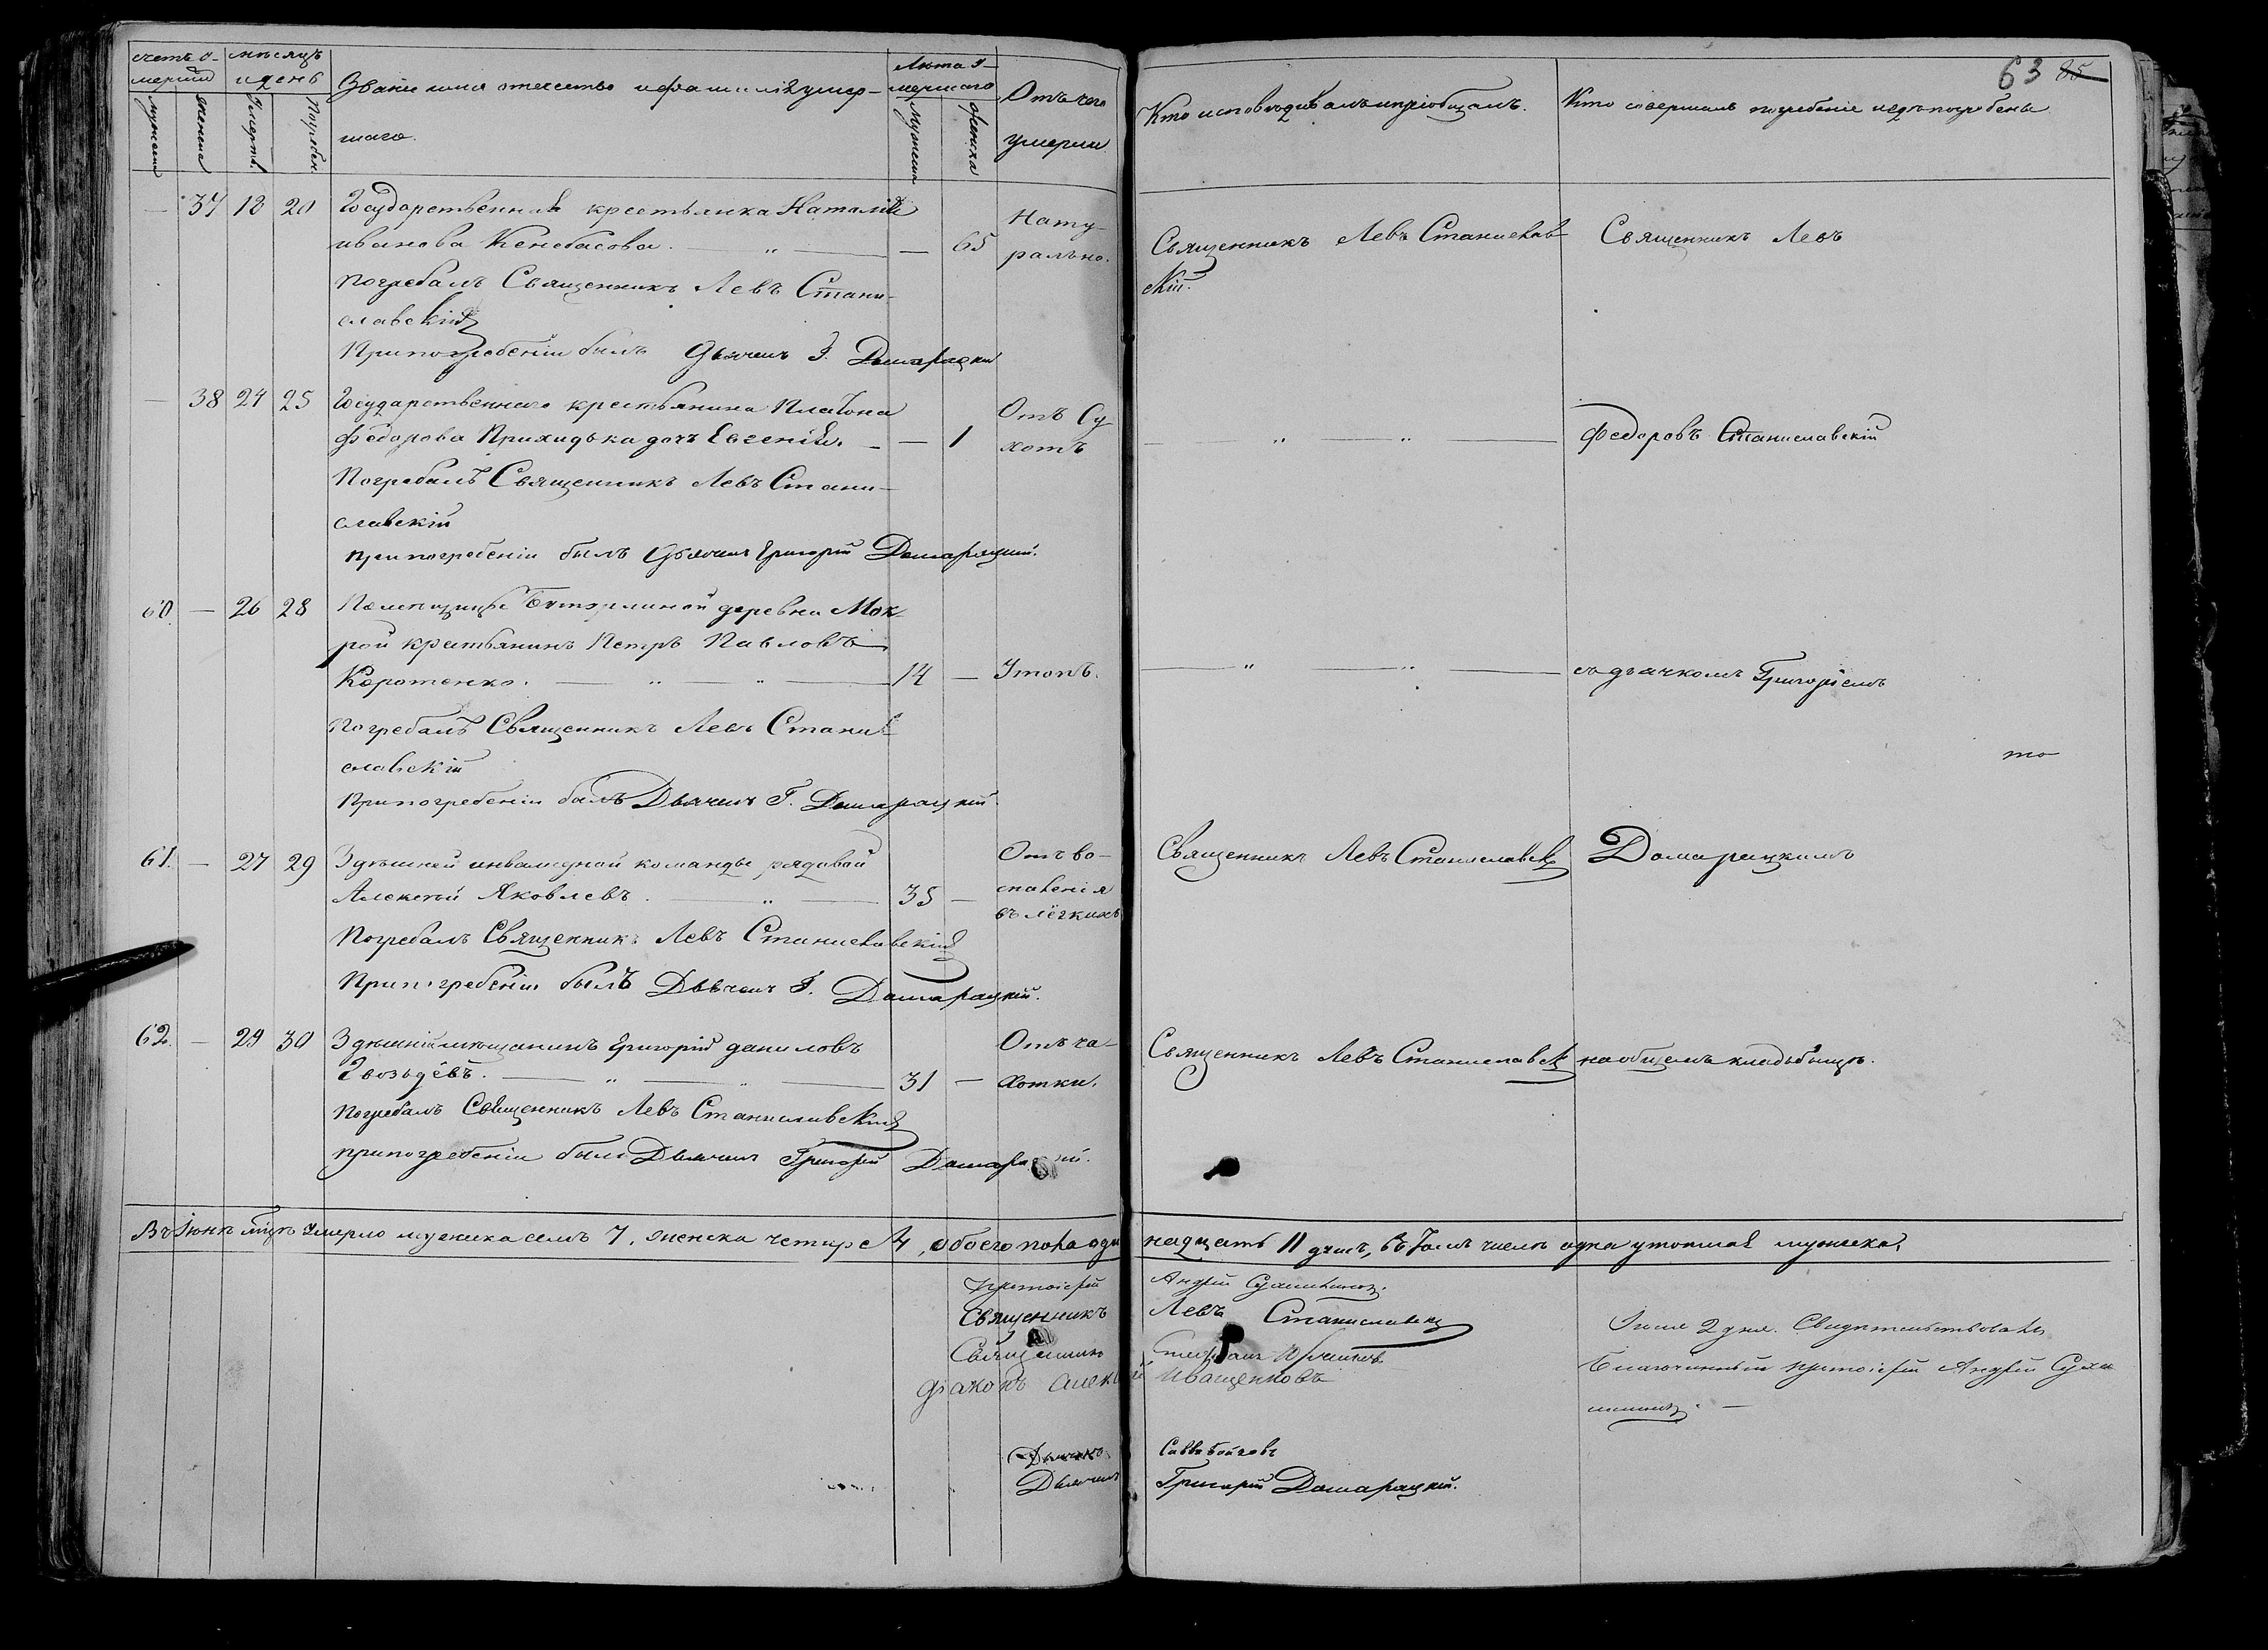 счетъ у-
мершихъ
мѣсяцъ
и день
Званіе имя отечество и фамилія умер-
шаго.
Лѣта у-
мершаго
Отъ чего
умерли
Мужеска
женска
Умерть.
Погребен.
Мужеска
женска
Кто исповѣдывалъ и пріобщалъ.
Кто совершалъ погребеніе и гдѣ погребены
63 85
— 37 18 20 Государственная крестьянка Наталія
иванова — 65
Нату-
рально.
Священникъ Левъ Станиславс-
кій.
Священникъ Левъ
Погребалъ Священникъ Левъ Стани-
славскій
При погребеніи былъ Дьячекъ Г. Домарацкій
— 38 24 25 Государственнаго крестьянина Платона
Федорова Приходька дочь Евгенія. — 1
Отъ Су
хотъ
Федоровъ Станиславскій
Погребалъ Священникъ Левъ Стани-
славскій
при погребеніи былъ Дьячекъ Григорій Домарацкій.
60. — 26 28 деревни Мок-
рой крестьянинъ Петръ Павловъ
Коротенко. 14 — Утопъ.
съ дьячкомъ Григоріемъ
Погребалъ Священникъ Левъ Стани-
славскій
то
При погребеніи былъ Дьячекъ Г. Домарацкій.
61. — 27 29 Здѣшней инвалидной команды рядовой
Алексѣй Яковлевъ. 35 —
Отъ во-
спаленія
въ лёгкихъ
Священникъ Левъ Станиславск
Домарацкимъ
Погребалъ Священникъ Левъ Станиславскій
При погребеніи былъ Дьячекъ Г. Домарацкій.
62. — 29 30 Здѣшній мѣщанинъ Григорій даниловъ
Гвоздёвъ. 31 —
Отъ ча-
хотки.
Священникъ Левъ Станиславск
на общемъ кладьбищѣ.
Погребалъ Священникъ Левъ Станиславскій
при погребеніи былъ Дьячекъ Григорій
Въ Іюнѣ мцѣ умерло мужеска семъ 7, женска четыре 4, обоего пола оди надцать 11 душъ, въ томъ числѣ одна утопшая мужеска.
Протоіерей Андрей
Священникъ Левъ Станиславскій
Священникъ Стефанъ
діаконъ Алексѣй Иващенковъ
Дьячекъ Савва
Дьячекъ Григорій Домарацкій.
2 дня. Свидѣтельствовалъ
Благочинный протоіерей Андрей